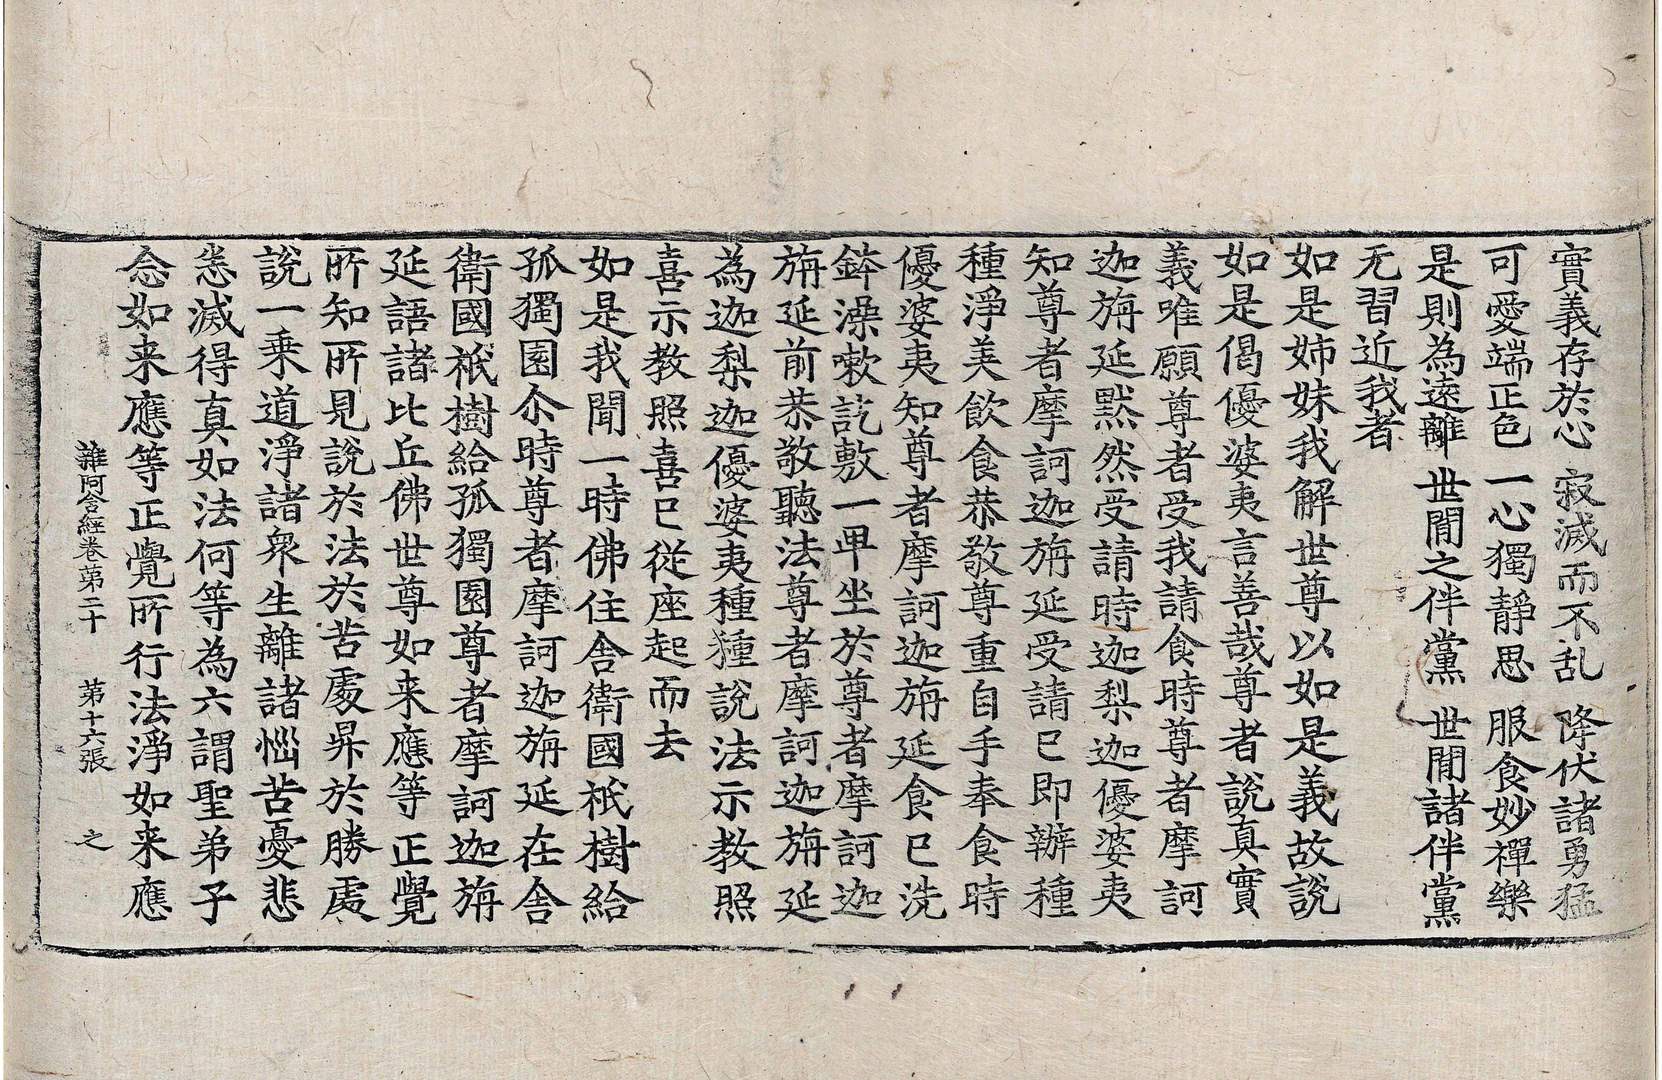 實義存於心 寂滅而不乱 降伏諸勇猛
可愛端正色 一心獨靜思 服食妙禪樂
是則為遠離 世閒之伴黨 世閒諸伴黨
无習近我者
如是姉妹我解世尊以如是義故說
如是偈優婆夷言善哉尊者說真實
義唯願尊者受我請食時尊者摩訶
迦旃延黙然受請時迦梨迦優婆夷
知尊者摩訶迦旃延受請已即辦種
種淨美飲食恭敬尊重自手奉食時
優婆夷知尊者摩訶迦旃延食已洗
鉢澡嗽訖敷一卑坐於尊者摩訶迦
旃延前恭敬聽法尊者摩訶迦旃延
為迦梨迦優婆夷種種說法示教照
喜示教照喜已從座起而去
如是我聞一時佛住舍衛國祇樹給
孤獨園尒時尊者摩訶迦旃延在舍
衛國祇樹給孤獨園尊者摩訶迦旃
延語諸比丘佛世尊如来應等正覺
所知所見說於法於苦處昇於勝處
說一乗道淨諸衆生離諸惱苦憂悲
悉滅得真如法何等為六謂聖弟子
念如来應等正覺所行法淨如来應
雜阿含經卷苐二十 苐十六張 之